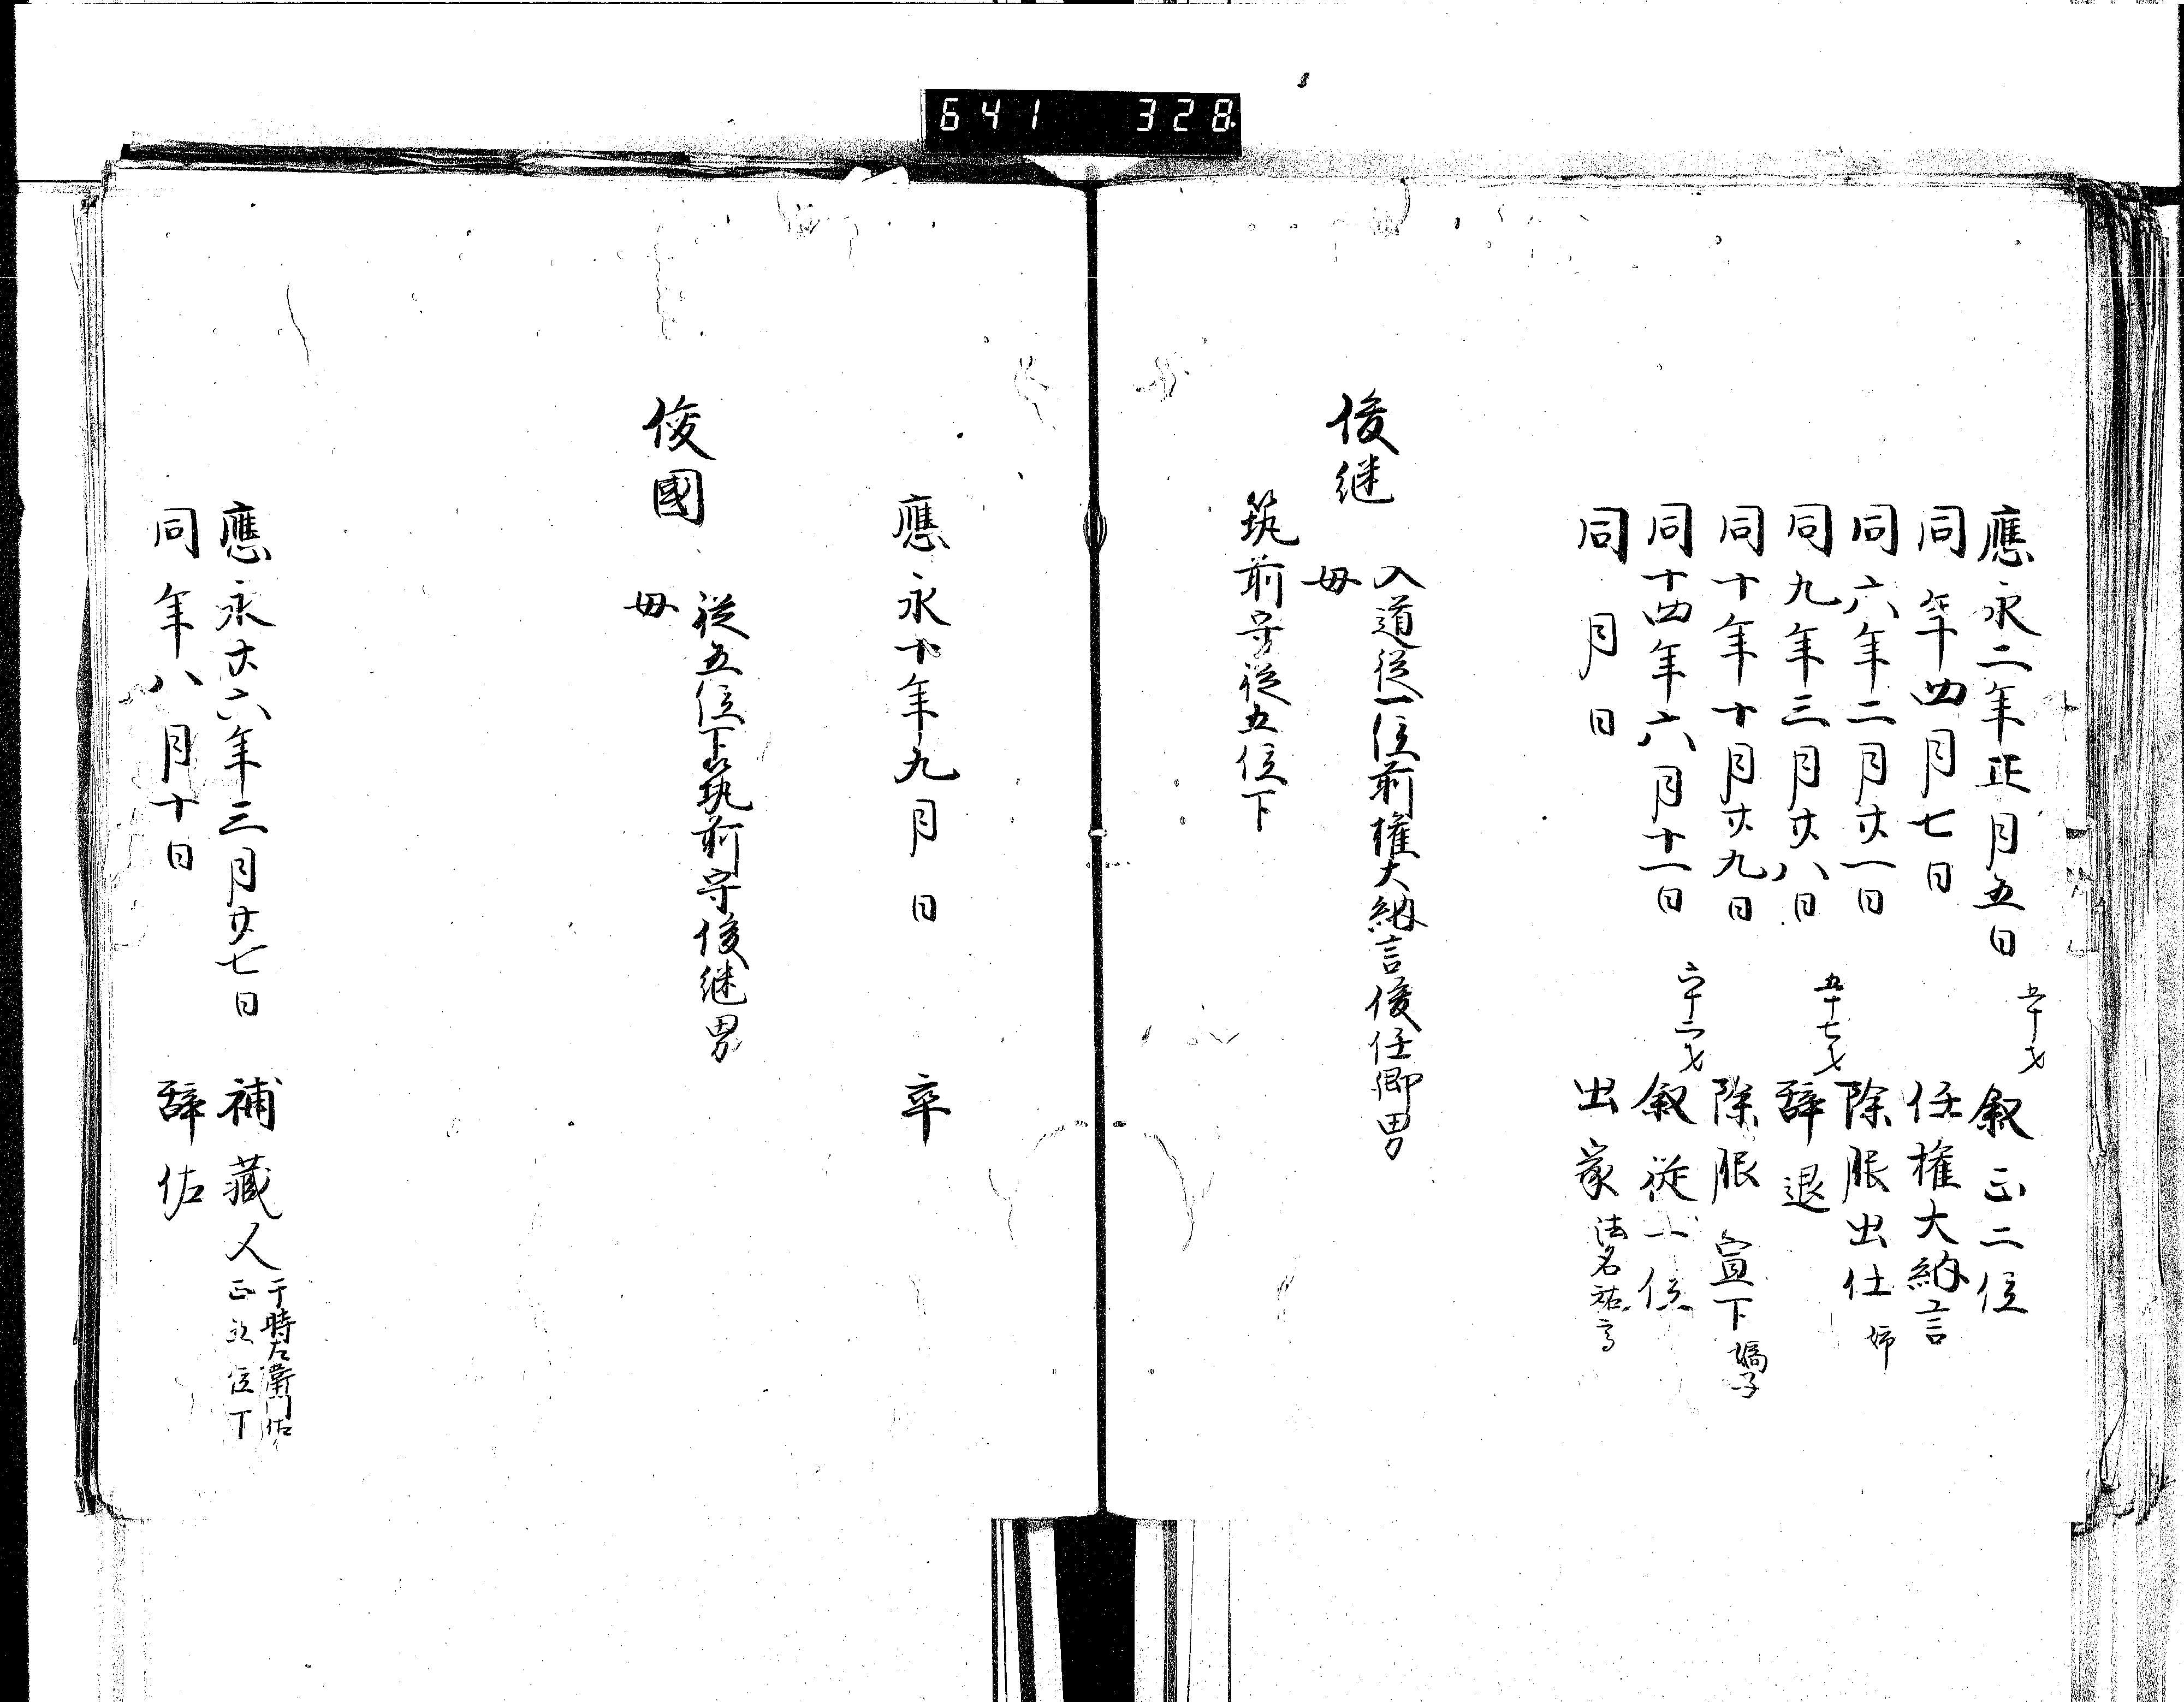 641 328
應永二年正月五日 五十才 叙正二位
同年四月七日 任權大納言
同六年二月廿一日 除服出仕 姉
同九年三月廿八日 五十七才 辞退
同十年十月廿九日 除服宣下 猶子
同十四年六月十一日 六十二才 叙從一位
同 月 日 出家 法名祐高
俊継 入道從一位前權大納言俊任卿男
母
筑前守從五位下
應永十年九月 日 卒
俊國 從五位下筑前守俊継男
母
應永廿六年三月廿七日 補藏人 于時左衛門佐 正五位下
同年八月十日 辞佐